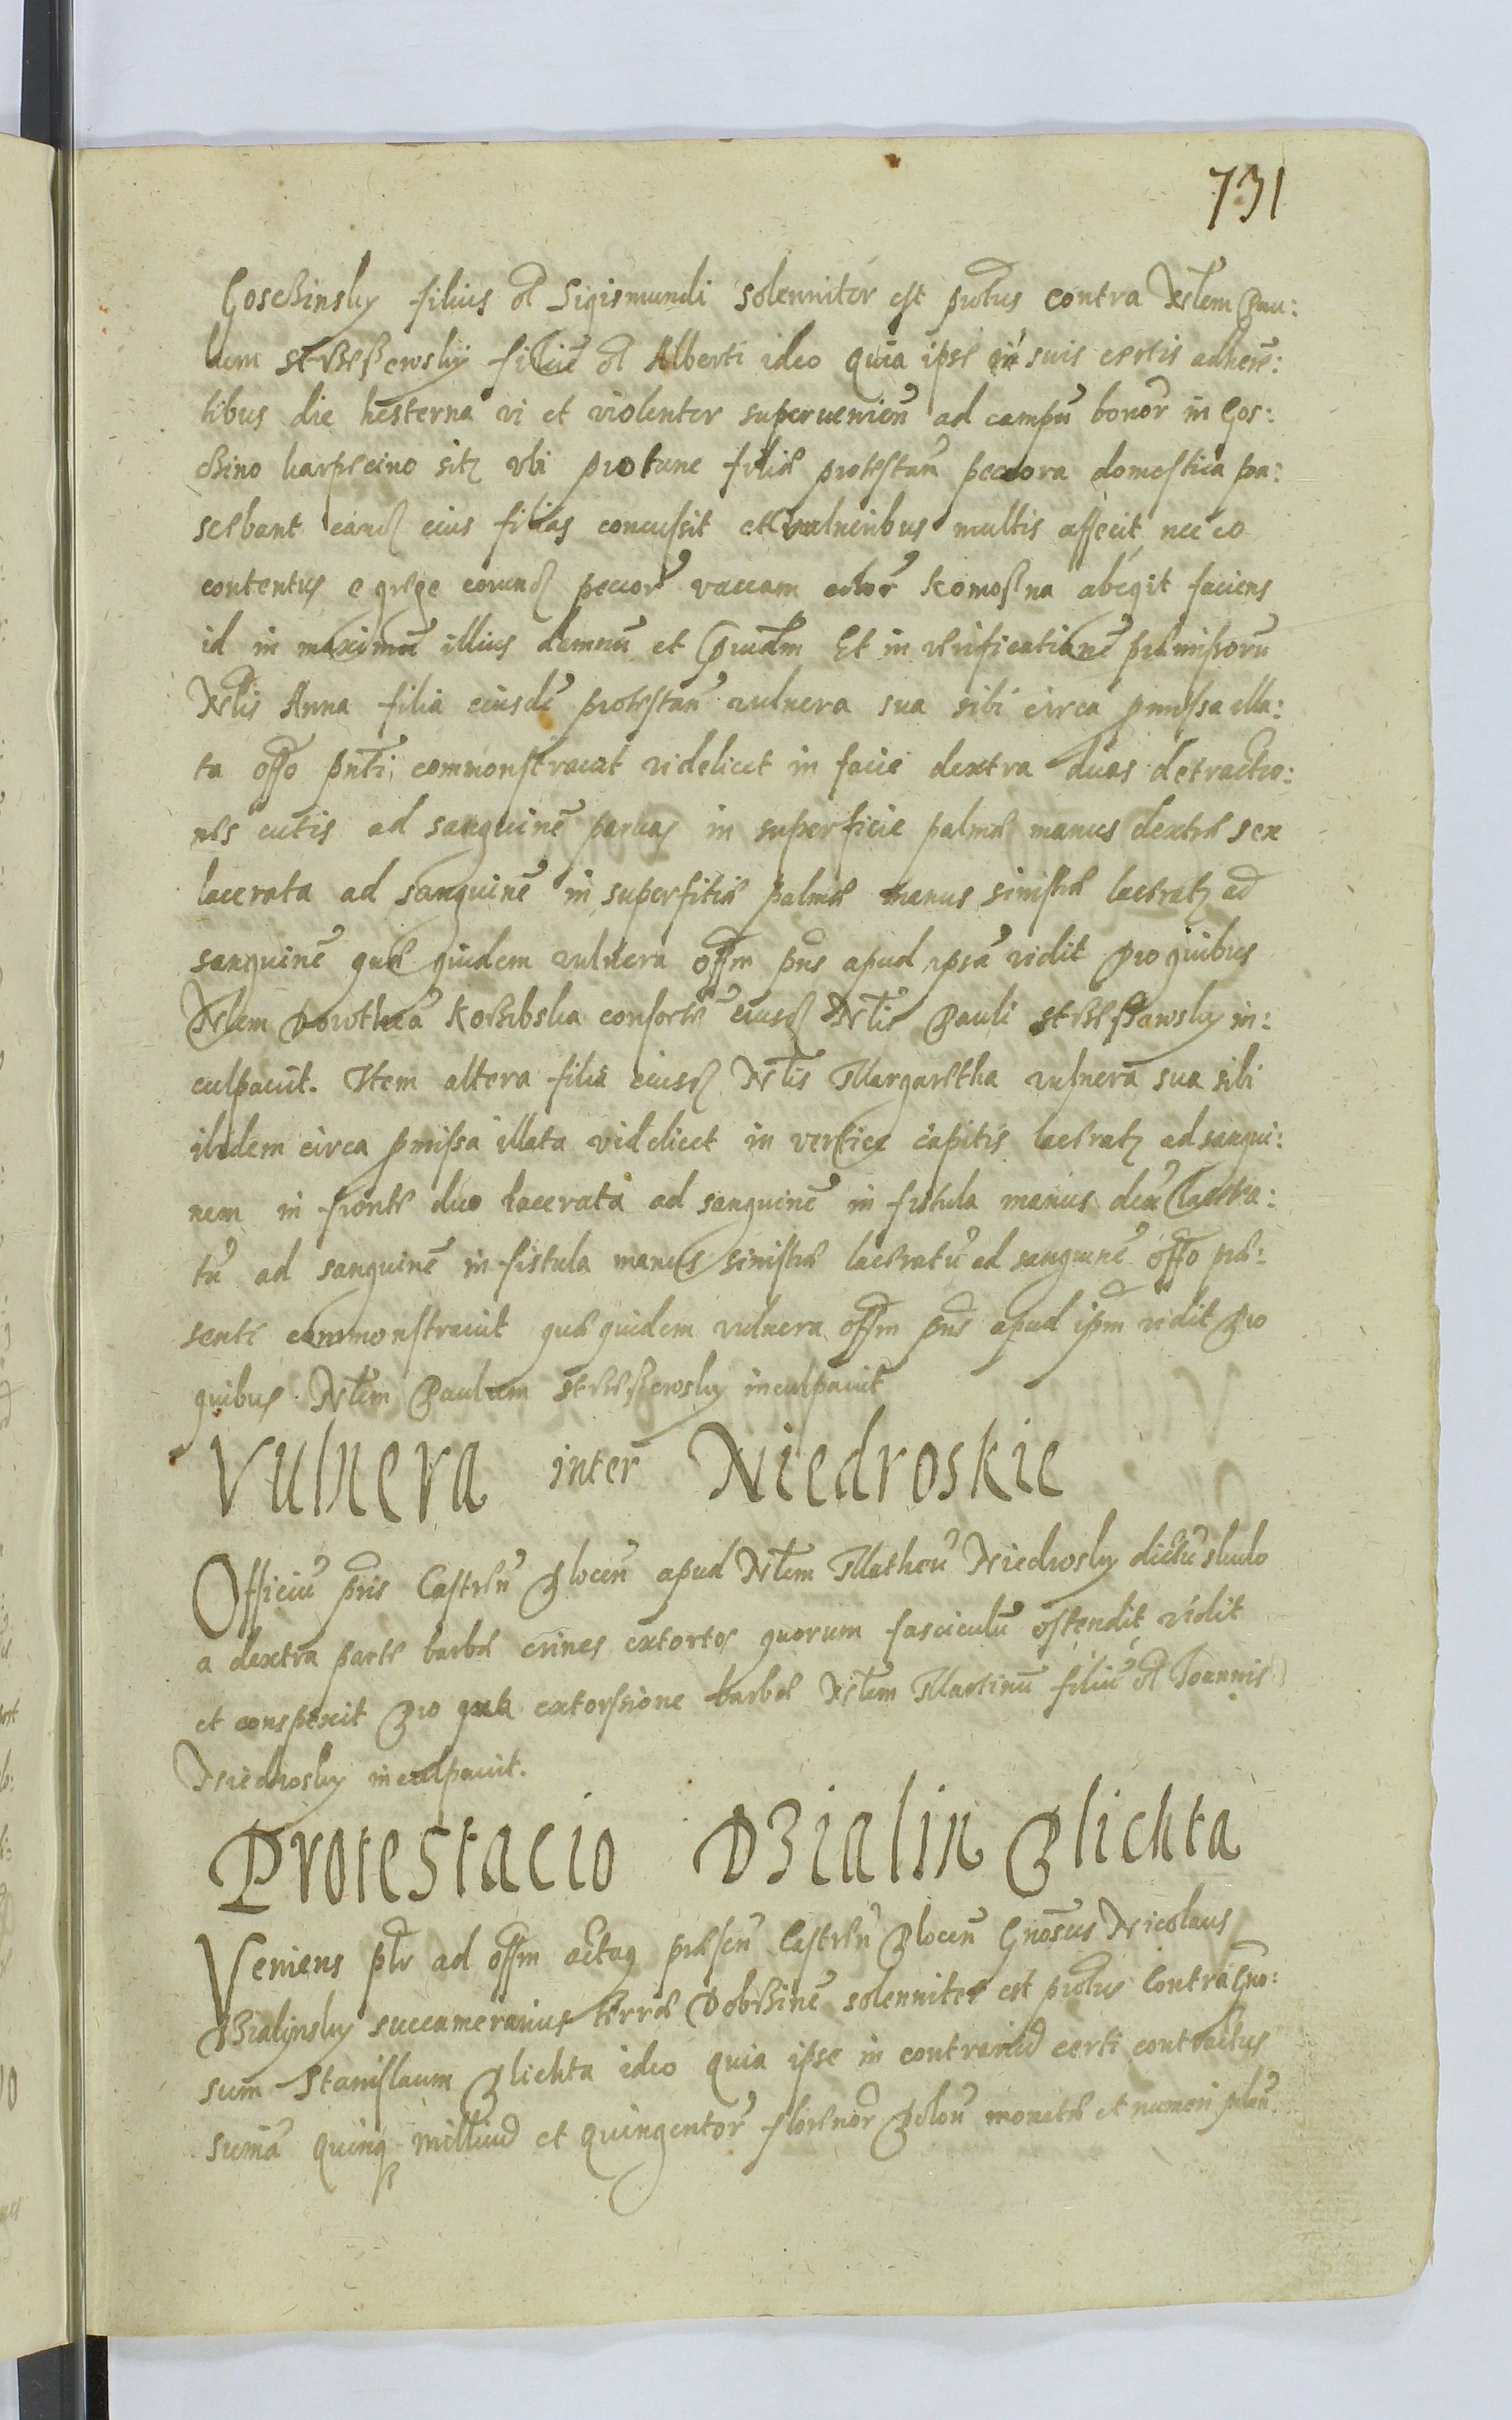 731
Gosczinsky filius ol Sigismundi solenniter est protus contra Nblem Pau:
lum filiũ ol Alberti ideo quia ipse cũ suis certis adherẽ:
tibus die hesterna vi et violenter superveniẽn ad campũ bonor in Gos:
czino karpiecino sitz vbi protunc filiæ protestañ pecora domestica pa:
scebant easdẽ eius filias concussit et vulneribus multis affecit, nec eo
contentus e grege eorundẽ pecor vaccam color komoszna abegit faciens
id in maximũ illius damnũ et Et in verificationẽ præmissorũ
Nblis Anna filia eiusdẽ protestañ vulnera sua sibi circa pmissa illa:
ta offo pñti, commonstravit videlicet in facie dextra duas detractio:
nes cutis ad sanguinẽ parvas in superficie palmæ manus dextræ sex
lacerata ad sanguinẽ in superfitie palmæ manus sinistræ laceratz ad
sanguinẽ quæ quidem vulnera offm pñs apud ipsã vidit pro quibus
Nblem Dorotheã consortẽ eiusdẽ Nblis Pauli in:
culpavit. Item altera filia eiusdẽ Nblis Margaretha vulnera sua sibi
ibidem circa pmissa illata videlicet in vertice capitis laceratz ad sangui:
nem in fronte duo lacerata ad sanguinẽ in fistula manus dex lacera:
tũ ad sanguinẽ in fistula manus sinistræ laceratũ ad sanguinẽ offo præ:
senti commonstravit quæ quidem vulnera offm pñs apud ipm vidit Pro
quibus Nblem Paulum inculpavit
Vulnera inter Niedroskie
Officiũ pñs Castreñ Plocẽn apud Nblem Matheũ Niedrosky dictũ
a dextra parte barbæ crines extortos quorum fasciculũ ostendit, vidit
et conspexit Pro qua extorssione barbæ Nblem Martinũ filiũ ol Joannis
Niedrosky inculpavit.
Protestacio Dzialin Plichta
Veniens ptr ad offm actaq præseñ Castreñ Plocẽn Gnosus Nicolaus
Dzialynsky succamerarius terræ Dobrzinẽ solenniter est protus Contra Gno:
sum Stanislaum Plichta ideo quia ipse in contrariũ certi contractus
sumã quinq milliũ et quingentor florenor Polon monetæ et numeri polon